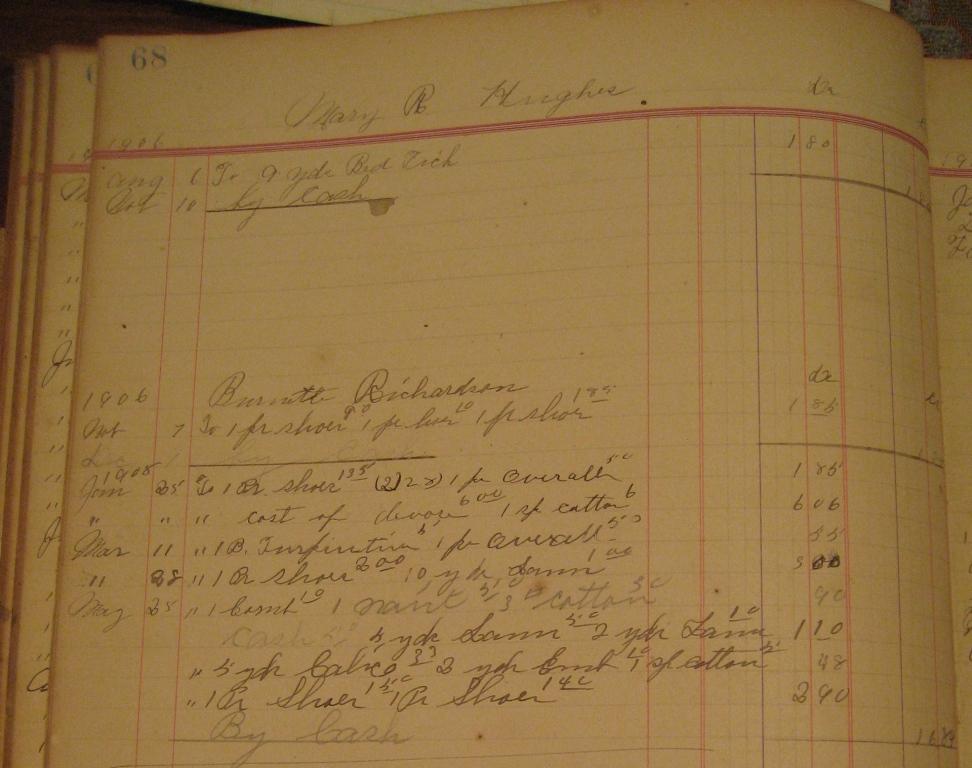 68
Mary R Hughes Dr
1906
Aug 6 To 9 yds Bed Tick 1 80
Oct 10 By Cash
1906 Burnette Richardson Dr
Nov 7 To 1 pr shoes 90 1 pr hose 10 1 pr shoes 1 85
By
1908
Jan 25 To 1 Pr shoes 135 (2)28) 1 pr overalls 50 1 85
" " " cost of devore 600 1 sp cotton 6 6 06
Mar 11 " 1 B. Turpintine 5 1 pr overall 50 55
" 28 " 1 Pr shoes 200 10 yds Lawn 100 3 00
May 25 " 1 Comb 10 1 cotton 90
Cash 5 yds Lawn 50 2 yds Lawn 10 1 10
" 5 yds Calico 33 2 yds 1 sp cotton 5 48
" 1 Pr Shoes 150 1 Pr Shoes 140 2 90
By Cash